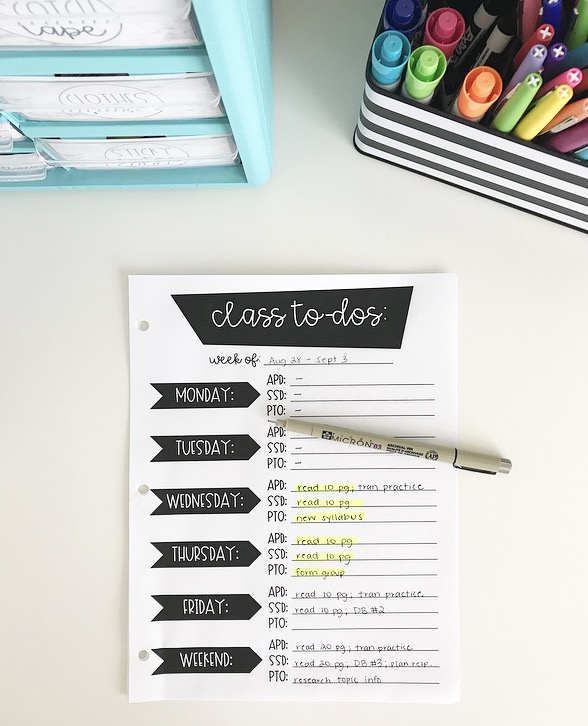 tape
CLOTHES
STICKY
class to-dos:
week of: Aug 28 - Sept 3
MONDAY:
APD: -
SSD: -
PTO: -
TUESDAY:
APD:
SSD: -
PTO: -
MICRON 03
WEDNESDAY:
APD: read 10 pg; tran practice
SSD: read 10 pg
PTO: new syllabus
THURSDAY:
APD: read 10 pg
SSD: read 10 pg
PTO: form group
FRIDAY:
APD: read 10 pg; tran practice
SSD: read 10 pg; DB #2
PTO:
WEEKEND:
APD: read 20 pg; tran practice
SSD: read 20 pg; DB #3; plan resp.
PTO: research topic info